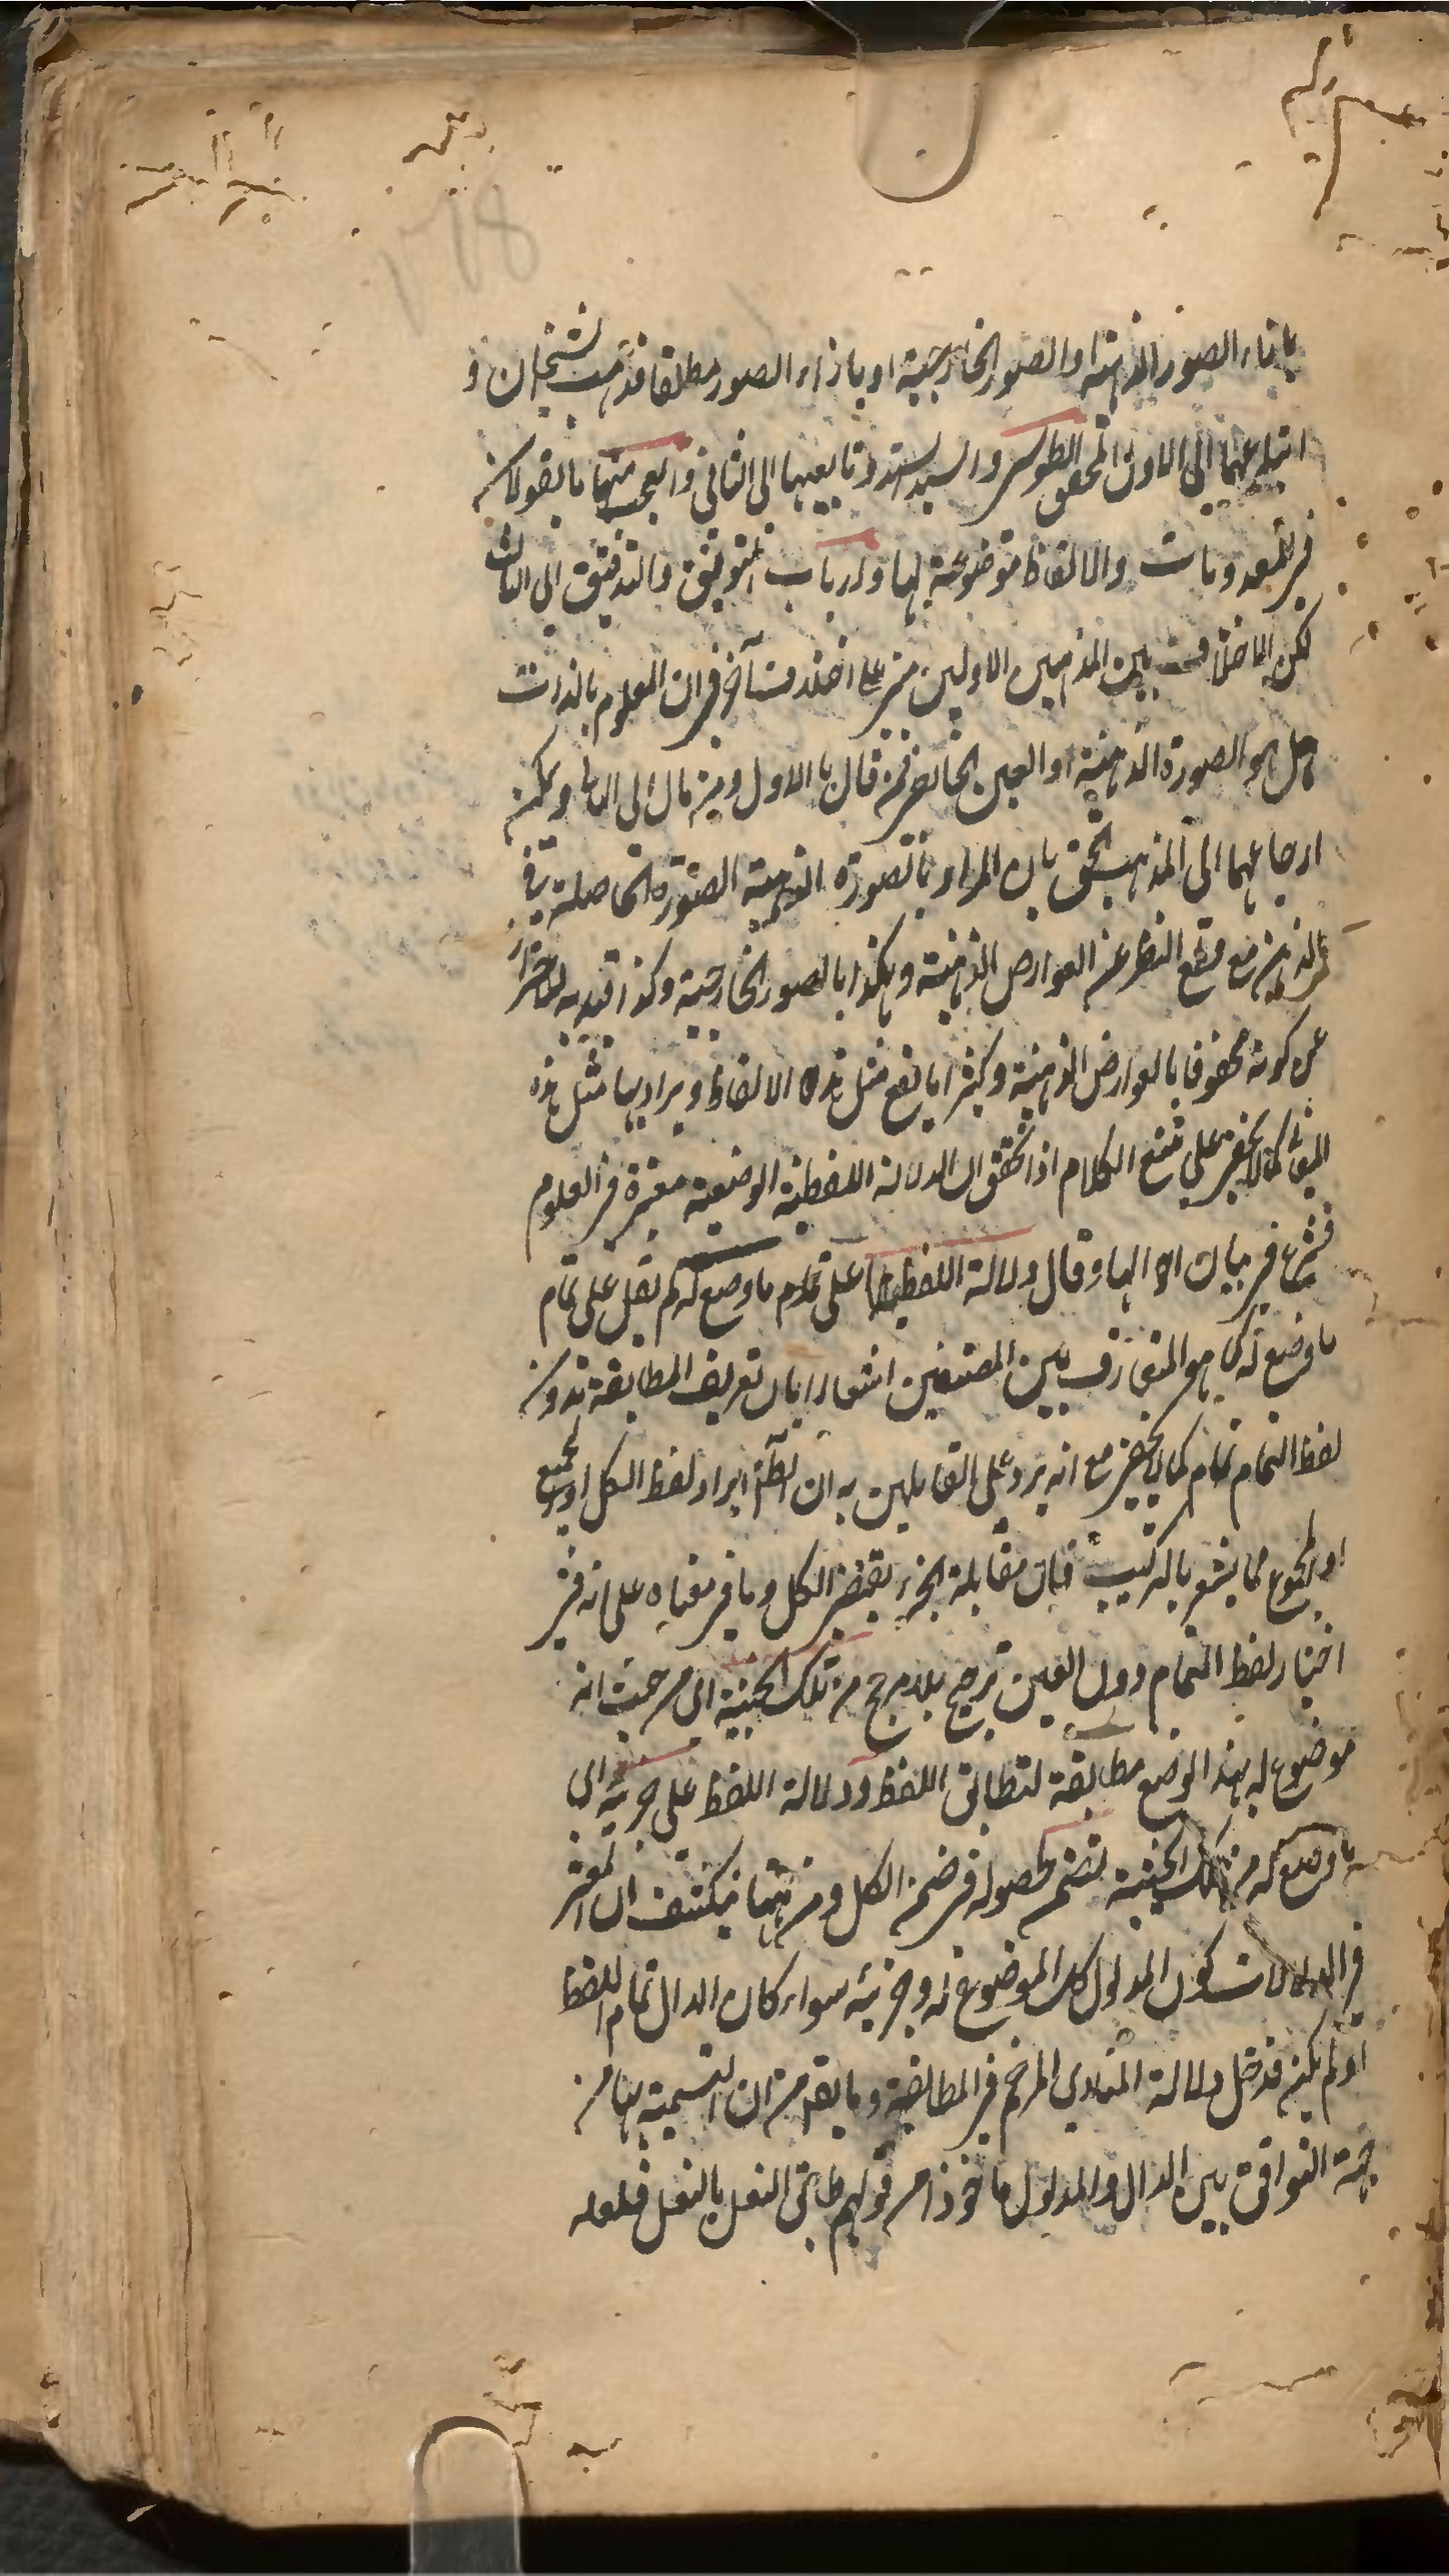 بازاء الصور الذهنية او الصور الخارجية او بازاء الصور مطلقا فذهب الشيخان و
اتباعهما الى الاول والمحقق الطوسى والسيد السند وتابعيهما الى الثانى والعجب منهما ما يقولانه
فى المعدومات والالفاظ موضوعة لها وارباب التوفيق والتدقيق الى الثالث
لكن الاختلاف بين المذهبين الاولين مبنى على اختلاف آخر فى ان المعلوم بالذات
هل هو الصورة الذهنية او العين الخارجى فمن قال بالاول ومن مال الى الثانى ويمكن
ارجاعهما الى المذهب الحق بان المراد بالصورة الذهنية الصورة الحاصلة فى
الذهن مع قطع النظر عن العوارض الذهنية وهكذا بالصور الخارجية وكذا قيد به للاحتراز
عن كونه محفوفا بالعوارض الذهنية وكثيرا ما يقع مثل هذه الالفاظ ويراد بها مثل هذه
المعانى كما لا يخفى على متتبع الكلام اذا تحقق ان الدلالة اللفظية الوضعية معتبرة فى العلوم
فشرع فى بيان اقسامها وقال دلالة اللفظ على تمام ما وضع له لم يقل على تمام
ما وضع له كما هو المتعارف بين المصنفين اشعارا بان تعريف المطابقة بدون
لفظ التمام تمام كما لا يخفى مع انه يرد على القايلين به ان الظاهر ايراد لفظ الكل او الجميع
او المجموع مما يشعر بالتركيب فان مقابلة الجزء يقتضى الكل وما فى معناه على انه فى
اختيار لفظ التمام دون العين ترجيح بلا مرجح من تلك الحيثية اى من حيث انه
موضوع له بهذا الوضع مطابقة لتطابق اللفظ ودلالة اللفظ على جزئه اى
ما وضع له من تلك الحيثية تضمن لحصوله فى ضمن الكل ومن ههنا ينكشف ان المعتبر
فى الدلالات كون المدلول كل الموضوع له وجزئه سواء كان الدال تمام اللفظ
او لم يكن فدخل دلالة المنادى المرخم فى المطابقة وما يقال من ان التسمية بها من
جهة التوافق بين الدال والمدلول ماخوذا من قولهم طابق النعل بالنعل فلعله